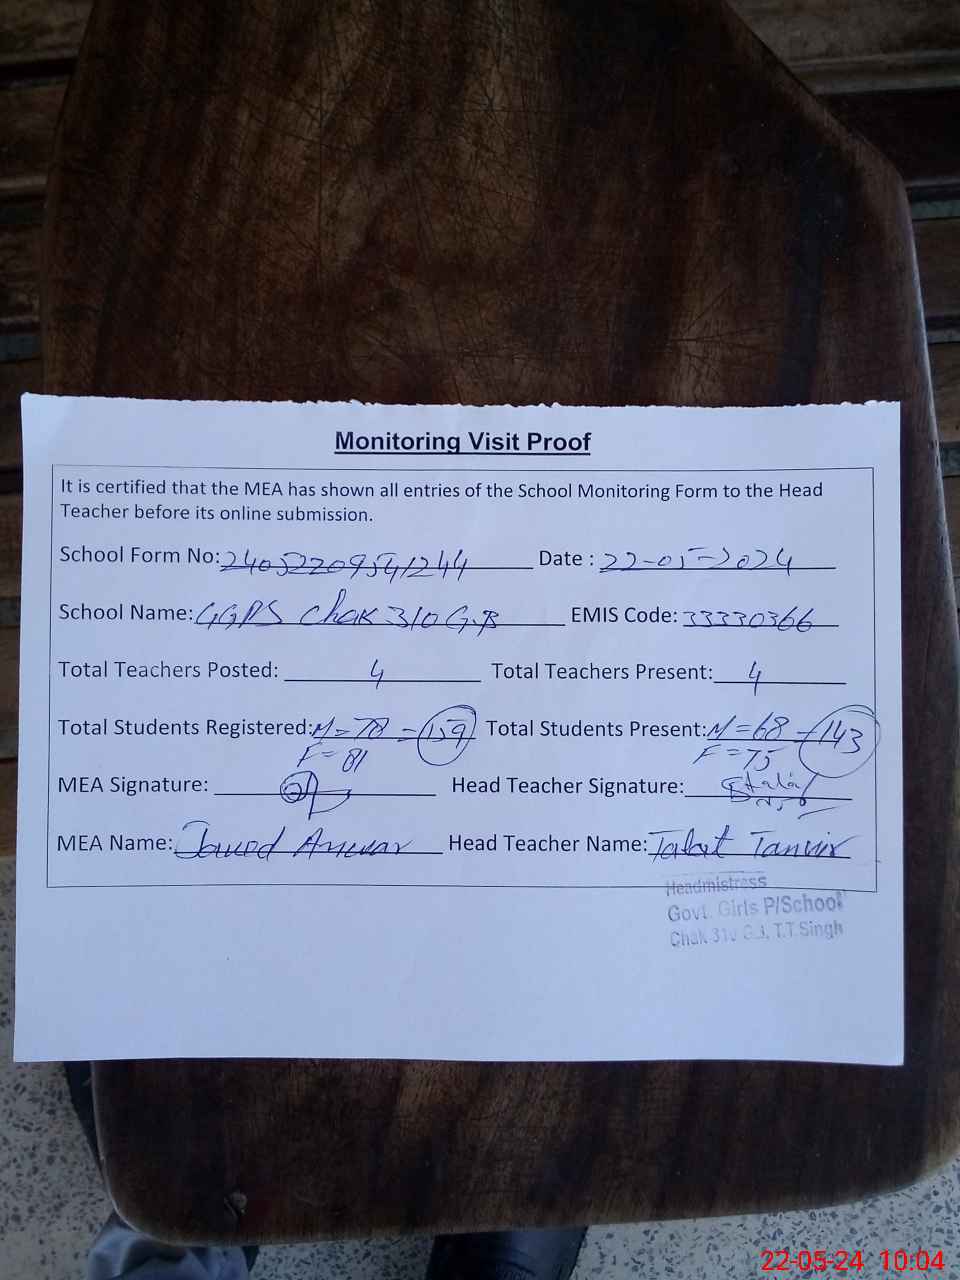 Monitoring Visit Proof
It is certified that the MEA has shown all entries of the School Monitoring Form to the Head
Teacher before its online submission.
School Form No: 24052209541244 Date : 22-05-2024
School Name: GGPS Chak 310 G.B EMIS Code: 33330366
Total Teachers Posted: 4 Total Teachers Present: 4
Total Students Registered: M=78 - 159 Total Students Present: M=68 - 143
F=81 F=75
MEA Signature: Head Teacher Signature:
MEA Name: Javed Anwar Head Teacher Name: Talat Tanvir
Headmistress
Govt. Girls P/School
Chak 310 G.B, T.T.Singh
22-05-24 10:04